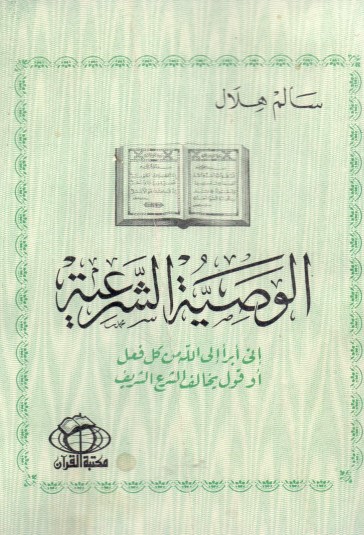 سالم هلال
الوصية الشرعية
إنى أبرأ إلى الله من كل فعل
أو قول يخالف الشرع الشريف
مكتبة القرآن